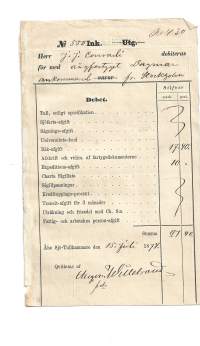 № 550 Ink. Utg.
Herr J. J. Conradi debiteras
för med ångfartyget Dagmar
ankommand varor fr. Stockholm
Debet.
Silfver
Tull, enligt specifikation
Sjöfarts-afgift
Båknings-afgift
Universitets-fond
Båt-afgift 17 40
Afskrift och vidim. af fartygsdokumenterne
Expeditions-afgift 10
Charta Sigillata
Sigillpenningar
Kreditupplags-procent
Transit-afgift för månader
Uträkning och frisedel med Ch. S:a
Fattig- och arbetshus procent-afgift
Summa 27 40
Åbo Sjö-Tullkammare den 15 Juli 1874.
Qvitteras af